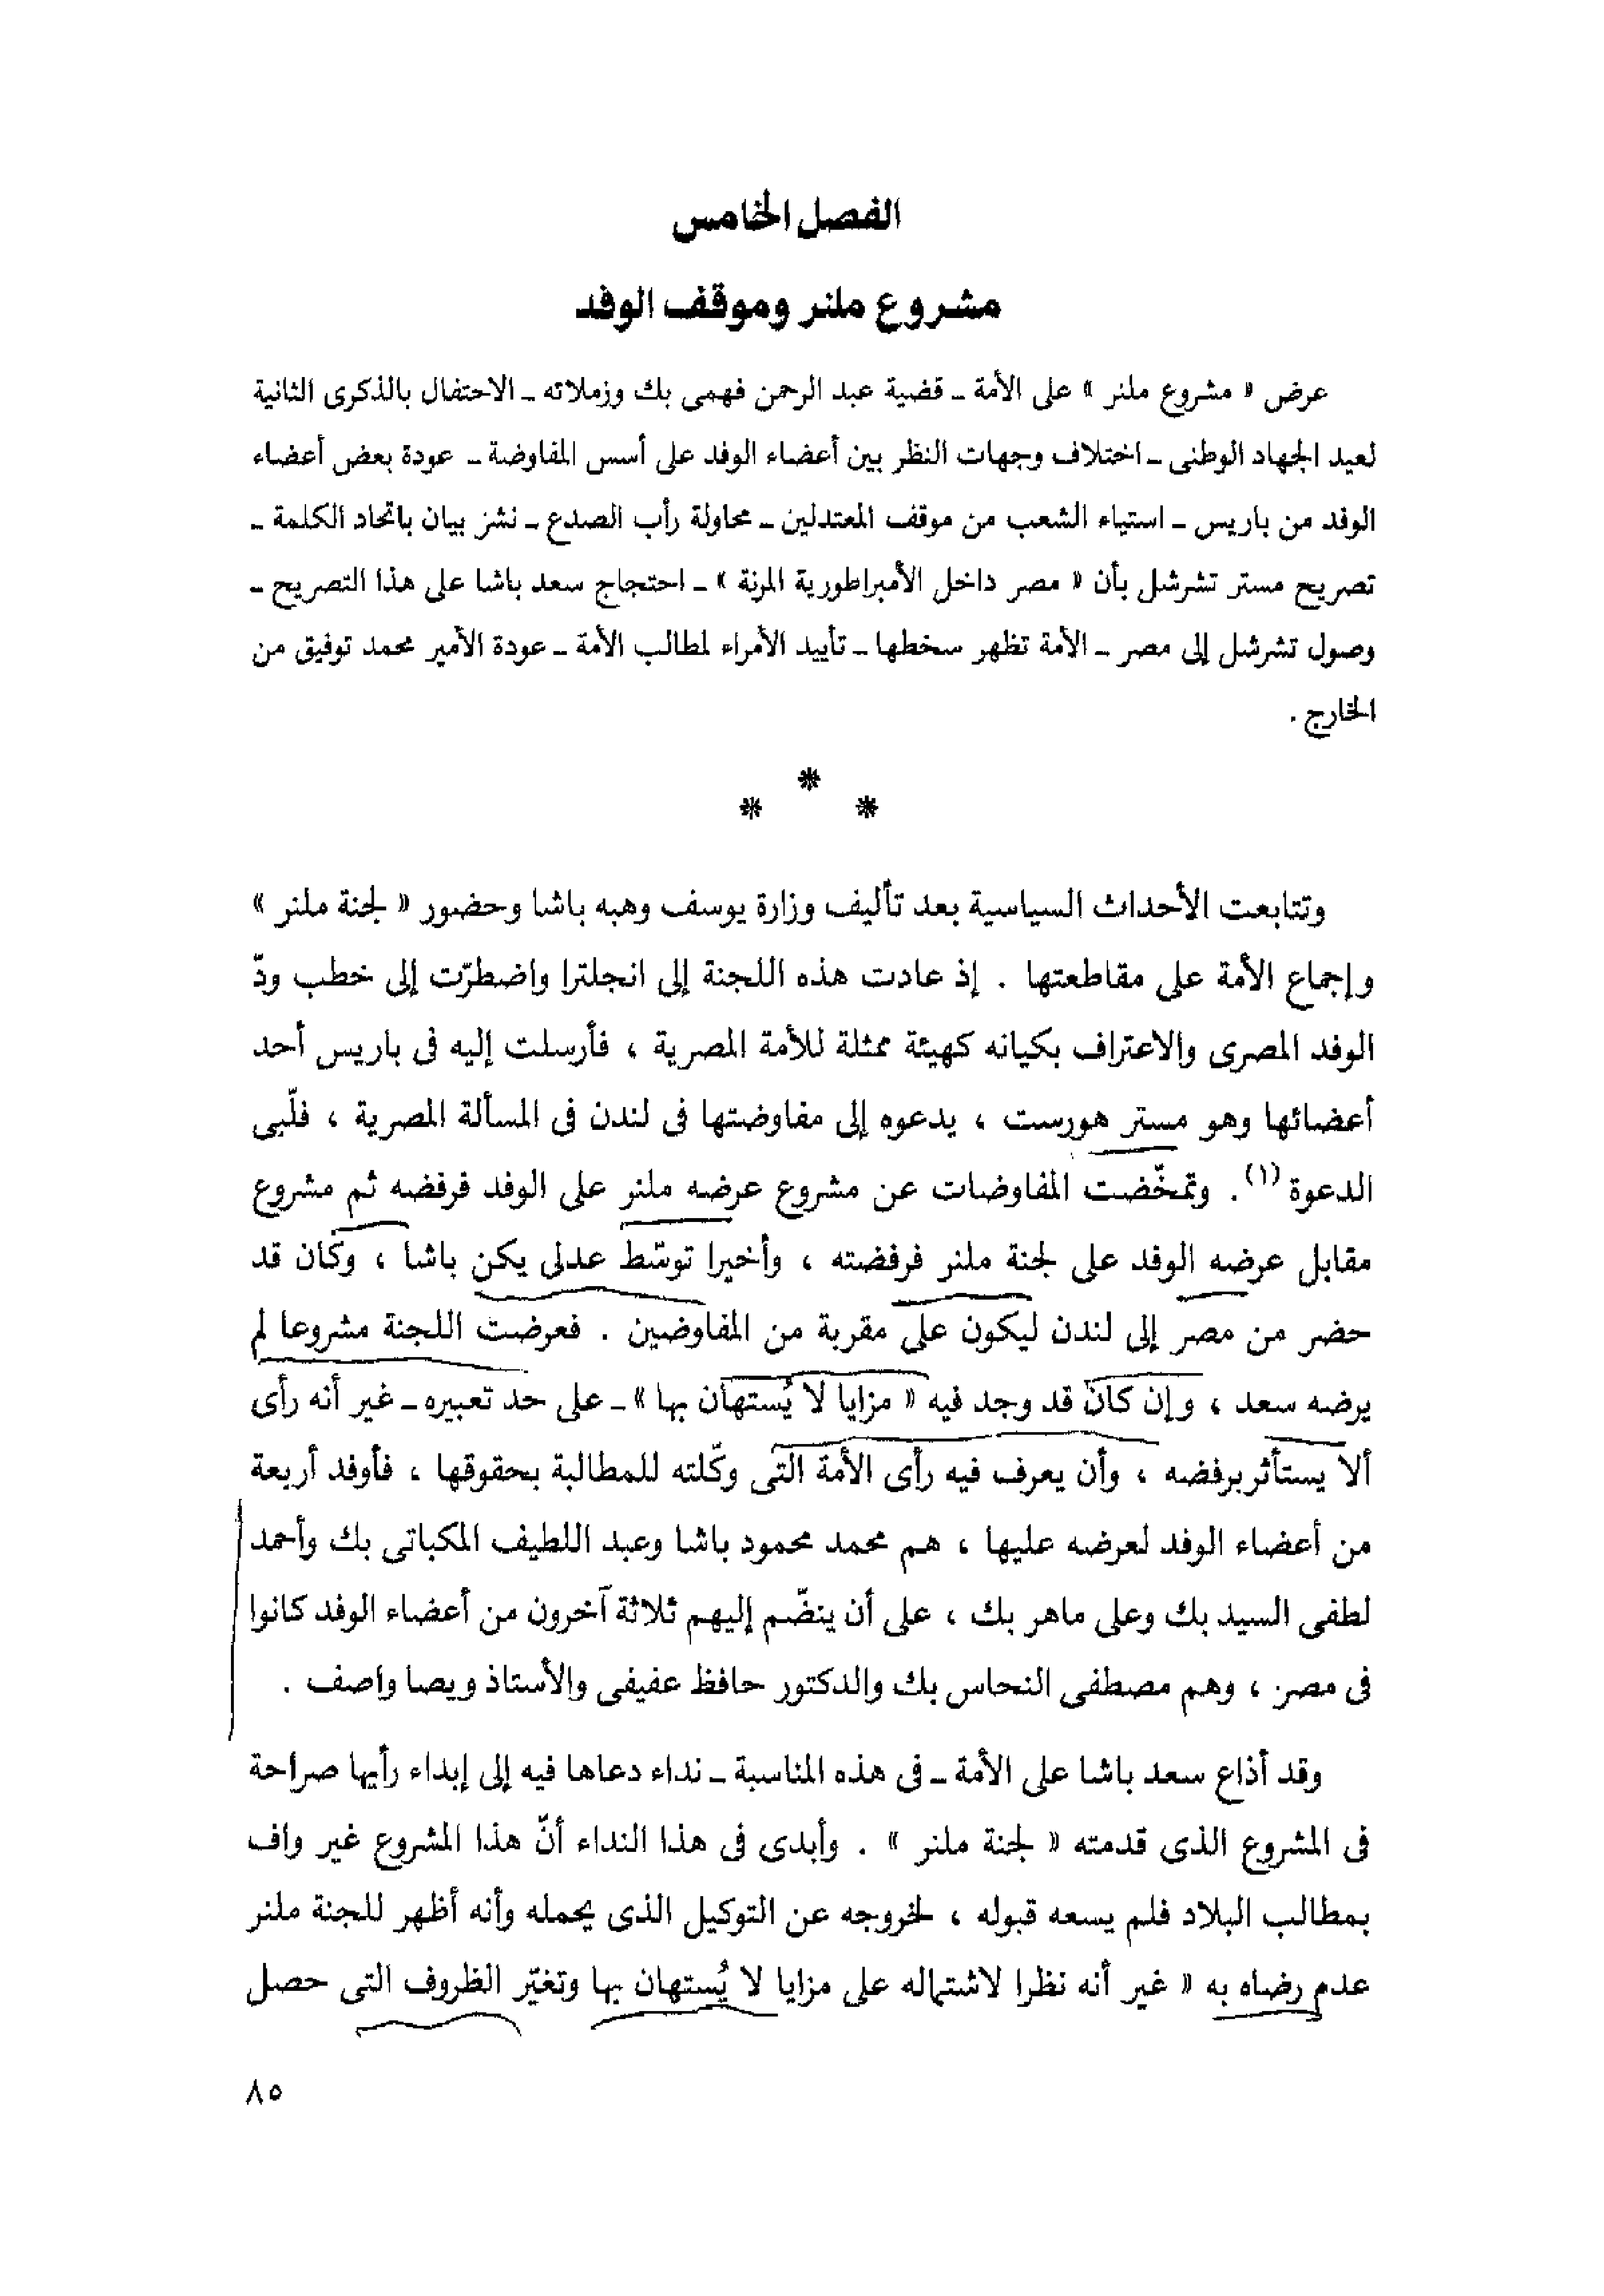 الفصل الخامس
مشروع ملنر وموقف الوفد
عرض « مشروع ملنر » على الأمة ـ قضية عبد الرحمن فهمى بك وزملائه ـ الاحتفال بالذكرى الثانية
لعيد الجهاد الوطنى ـ اختلاف وجهات النظر بين أعضاء الوفد على أسس المفاوضة ـ عودة بعض أعضاء
الوفد من باريس ـ استياء الشعب من موقف المعتدلين ـ محاولة رأب الصدع ـ نشر بيان باتحاد الكلمة ـ
تصريح مستر تشرشل بأن « مصر داخل الأمبراطورية المرنة » ـ احتجاج سعد باشا على هذا التصريح ـ
وصول تشرشل إلى مصر ـ الأمة تظهر سخطها ـ تأييد الأمراء لمطالب الأمة ـ عودة الأمير محمد توفيق من
الخارج .
*
* *
وتتابعت الأحداث السياسية بعد تأليف وزارة يوسف وهبه باشا وحضور « لجنة ملنر »
وإجماع الأمة على مقاطعتها . إذ عادت هذه اللجنة إلى انجلترا واضطرّت إلى خطب ودّ
الوفد المصرى والاعتراف بكيانه كهيئة ممثلة للأمة المصرية ، فأرسلت إليه فى باريس أحد
أعضائها وهو مستر هورست ، يدعوه إلى مفاوضتها فى لندن فى المسألة المصرية ، فلّبى
الدعوة (١) . وتمخّضت المفاوضات عن مشروع عرضه ملنر على الوفد فرفضه ثم مشروع
مقابل عرضه الوفد على لجنة ملنر فرفضته ، وأخيرا توسّط عدلى يكن باشا ، وكان قد
حضر من مصر إلى لندن ليكون على مقربة من المفاوضين . فعرضت اللجنة مشروعا لم
يرضه سعد ، وإن كان قد وجد فيه « مزايا لا يُستهان بها » ـ على حد تعبيره ـ غير أنه رأى
ألا يستأثر برفضه ، وأن يعرف فيه رأى الأمة التى وكّلته للمطالبة بحقوقها ، فأوفد أربعة
من أعضاء الوفد لعرضه عليها ، هم محمد محمود باشا وعبد اللطيف المكباتى بك وأحمد
لطفى السيد بك وعلى ماهر بك ، على أن ينضّم إليهم ثلاثة آخرون من أعضاء الوفد كانوا
فى مصر ، وهم مصطفى النحاس بك والدكتور حافظ عفيفى والأستاذ ويصا واصف .
وقد أذاع سعد باشا على الأمة ـ فى هذه المناسبة ـ نداء دعاها فيه إلى إبداء رأيها صراحة
فى المشروع الذى قدمته « لجنة ملنر » . وأبدى فى هذا النداء أنّ هذا المشروع غير واف
بمطالب البلاد فلم يسعه قبوله ، لخروجه عن التوكيل الذى يحمله وأنه أظهر للجنة ملنر
عدم رضاه به « غير أنه نظرا لاشتماله على مزايا لا يُستهان بها وتغيّر الظروف التى حصل
٨٥